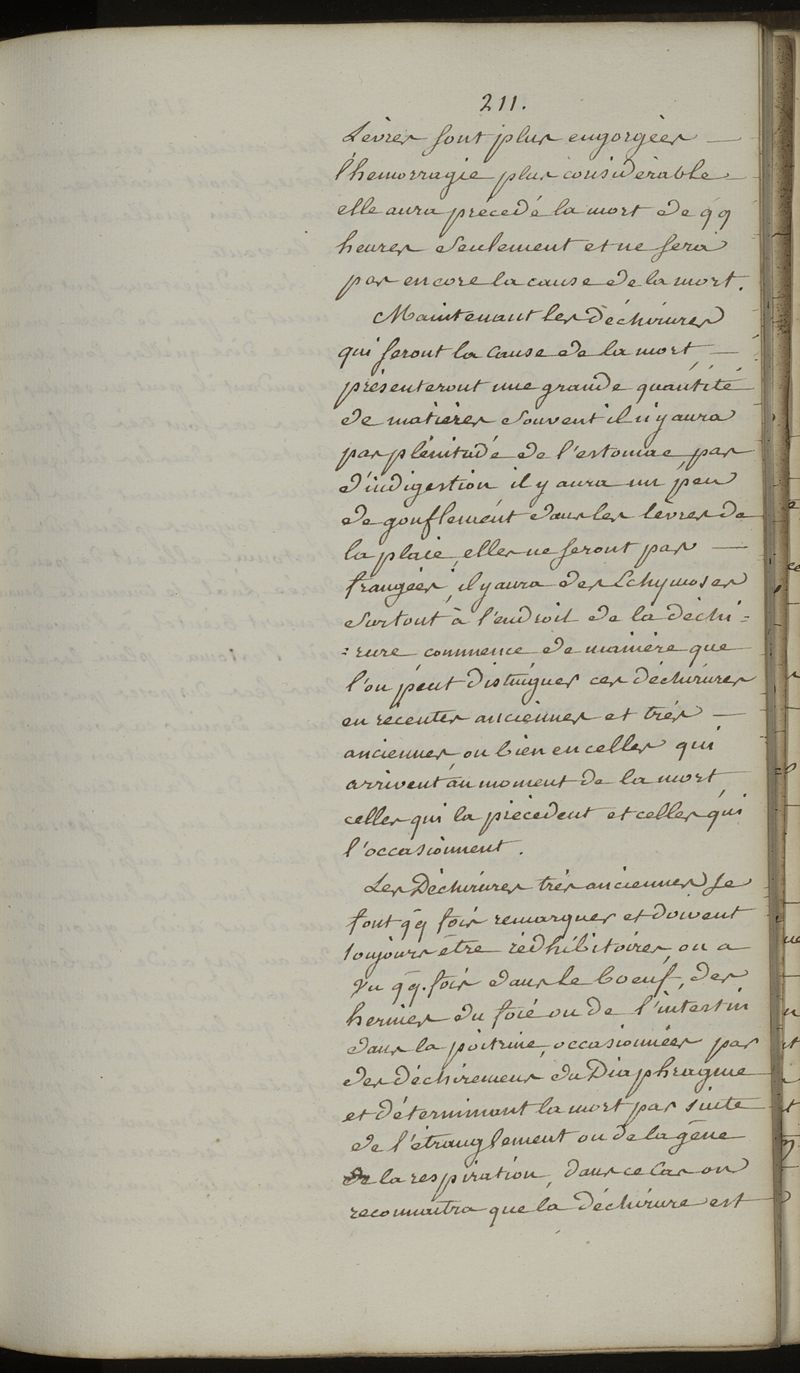 211.
Lèvres sont plus engorgées —
l'hemorragie plus considérable
elle aura précedé la mort de qq
heures seulement et ne sera
pas encore la cause de la mort.
Maintenant les déchirures
qui seront la cause de la mort —
présenteront une grande quantité
de matières souvent il n'y aura
pas plénitude de l'estomac pas
d'indigestion il y aura un peu
de gonflement dans les lèvres de
la plaie, elles ne seront pas —
frangées, il y aura des Echymoses
surtout à l'endroit de la déchi=
=rure commence de manière que
l'on peut distinguer ces déchirures
en recentes anciennes et trés —
anciennes ou bien en celles qui
arrivent au moment de la mort,
celles qui la précedent et celles qui
l'occasionnent.
Les Déchirures trés anciennes se
font qq fois remarquer et doivent
toujours être rédhibitoires, on a
vu qq. fois dans le boeuf, des
hernies du foie ou de l'intestin
dans la poitrine, occasionnées par
des déchiremens du Diaphragme
et déterminant la mort par suite
de l'étranglement ou de la gêne
de la respiration, dans ce cas on
reconnaitra que la déchirure est